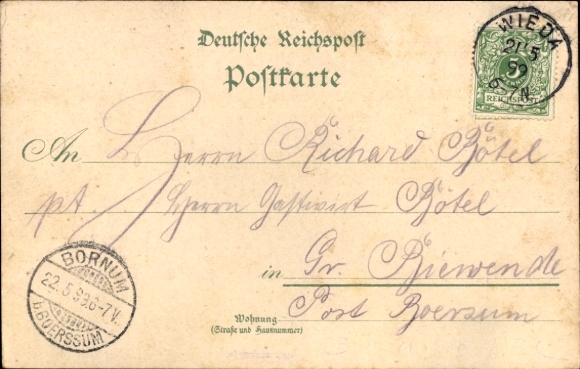 Deutsche Reichspost
Postkarte
WIEDA
21 5
99
6-7N.
5
REICHSPOST
An Herrn Richard Bötel
pt Herrn Gastwirt Bötel
in Gr. Biewende
Post Boersum
BORNUM
22.5.99.6-7V.
b.BOERSSUM
Wohnung
(Straße und Hausnummer)